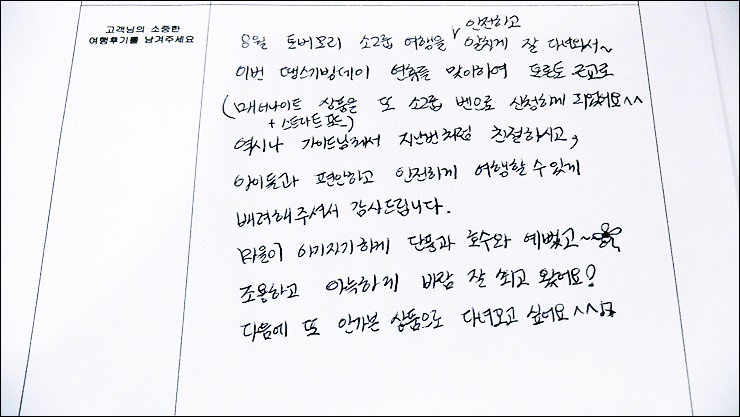 고객님의 소중한
여행후기를 남겨주세요
8월 토버모리 소그룹 여행을 ∨안전하고 알차게 잘 다녀와서~
이번 땡스기빙데이 연휴를 맞이하여 토론토 근교로
(매너나이트 상품을 또 소그룹 밴으로 신청하게 되었어요^^
+ 스트라트포드)
역시나 가이드님께서 지난번처럼 친절하시고,
아이들과 편안하고 안전하게 여행할 수 있게
배려해주셔서 감사드립니다.
마을이 아기자기하게 단풍과 호수와 예뻤고~
조용하고 아늑하게 바람 잘 쐬고 왔어요!
다음에 또 안가본 상품으로 다녀오고 싶어요^^